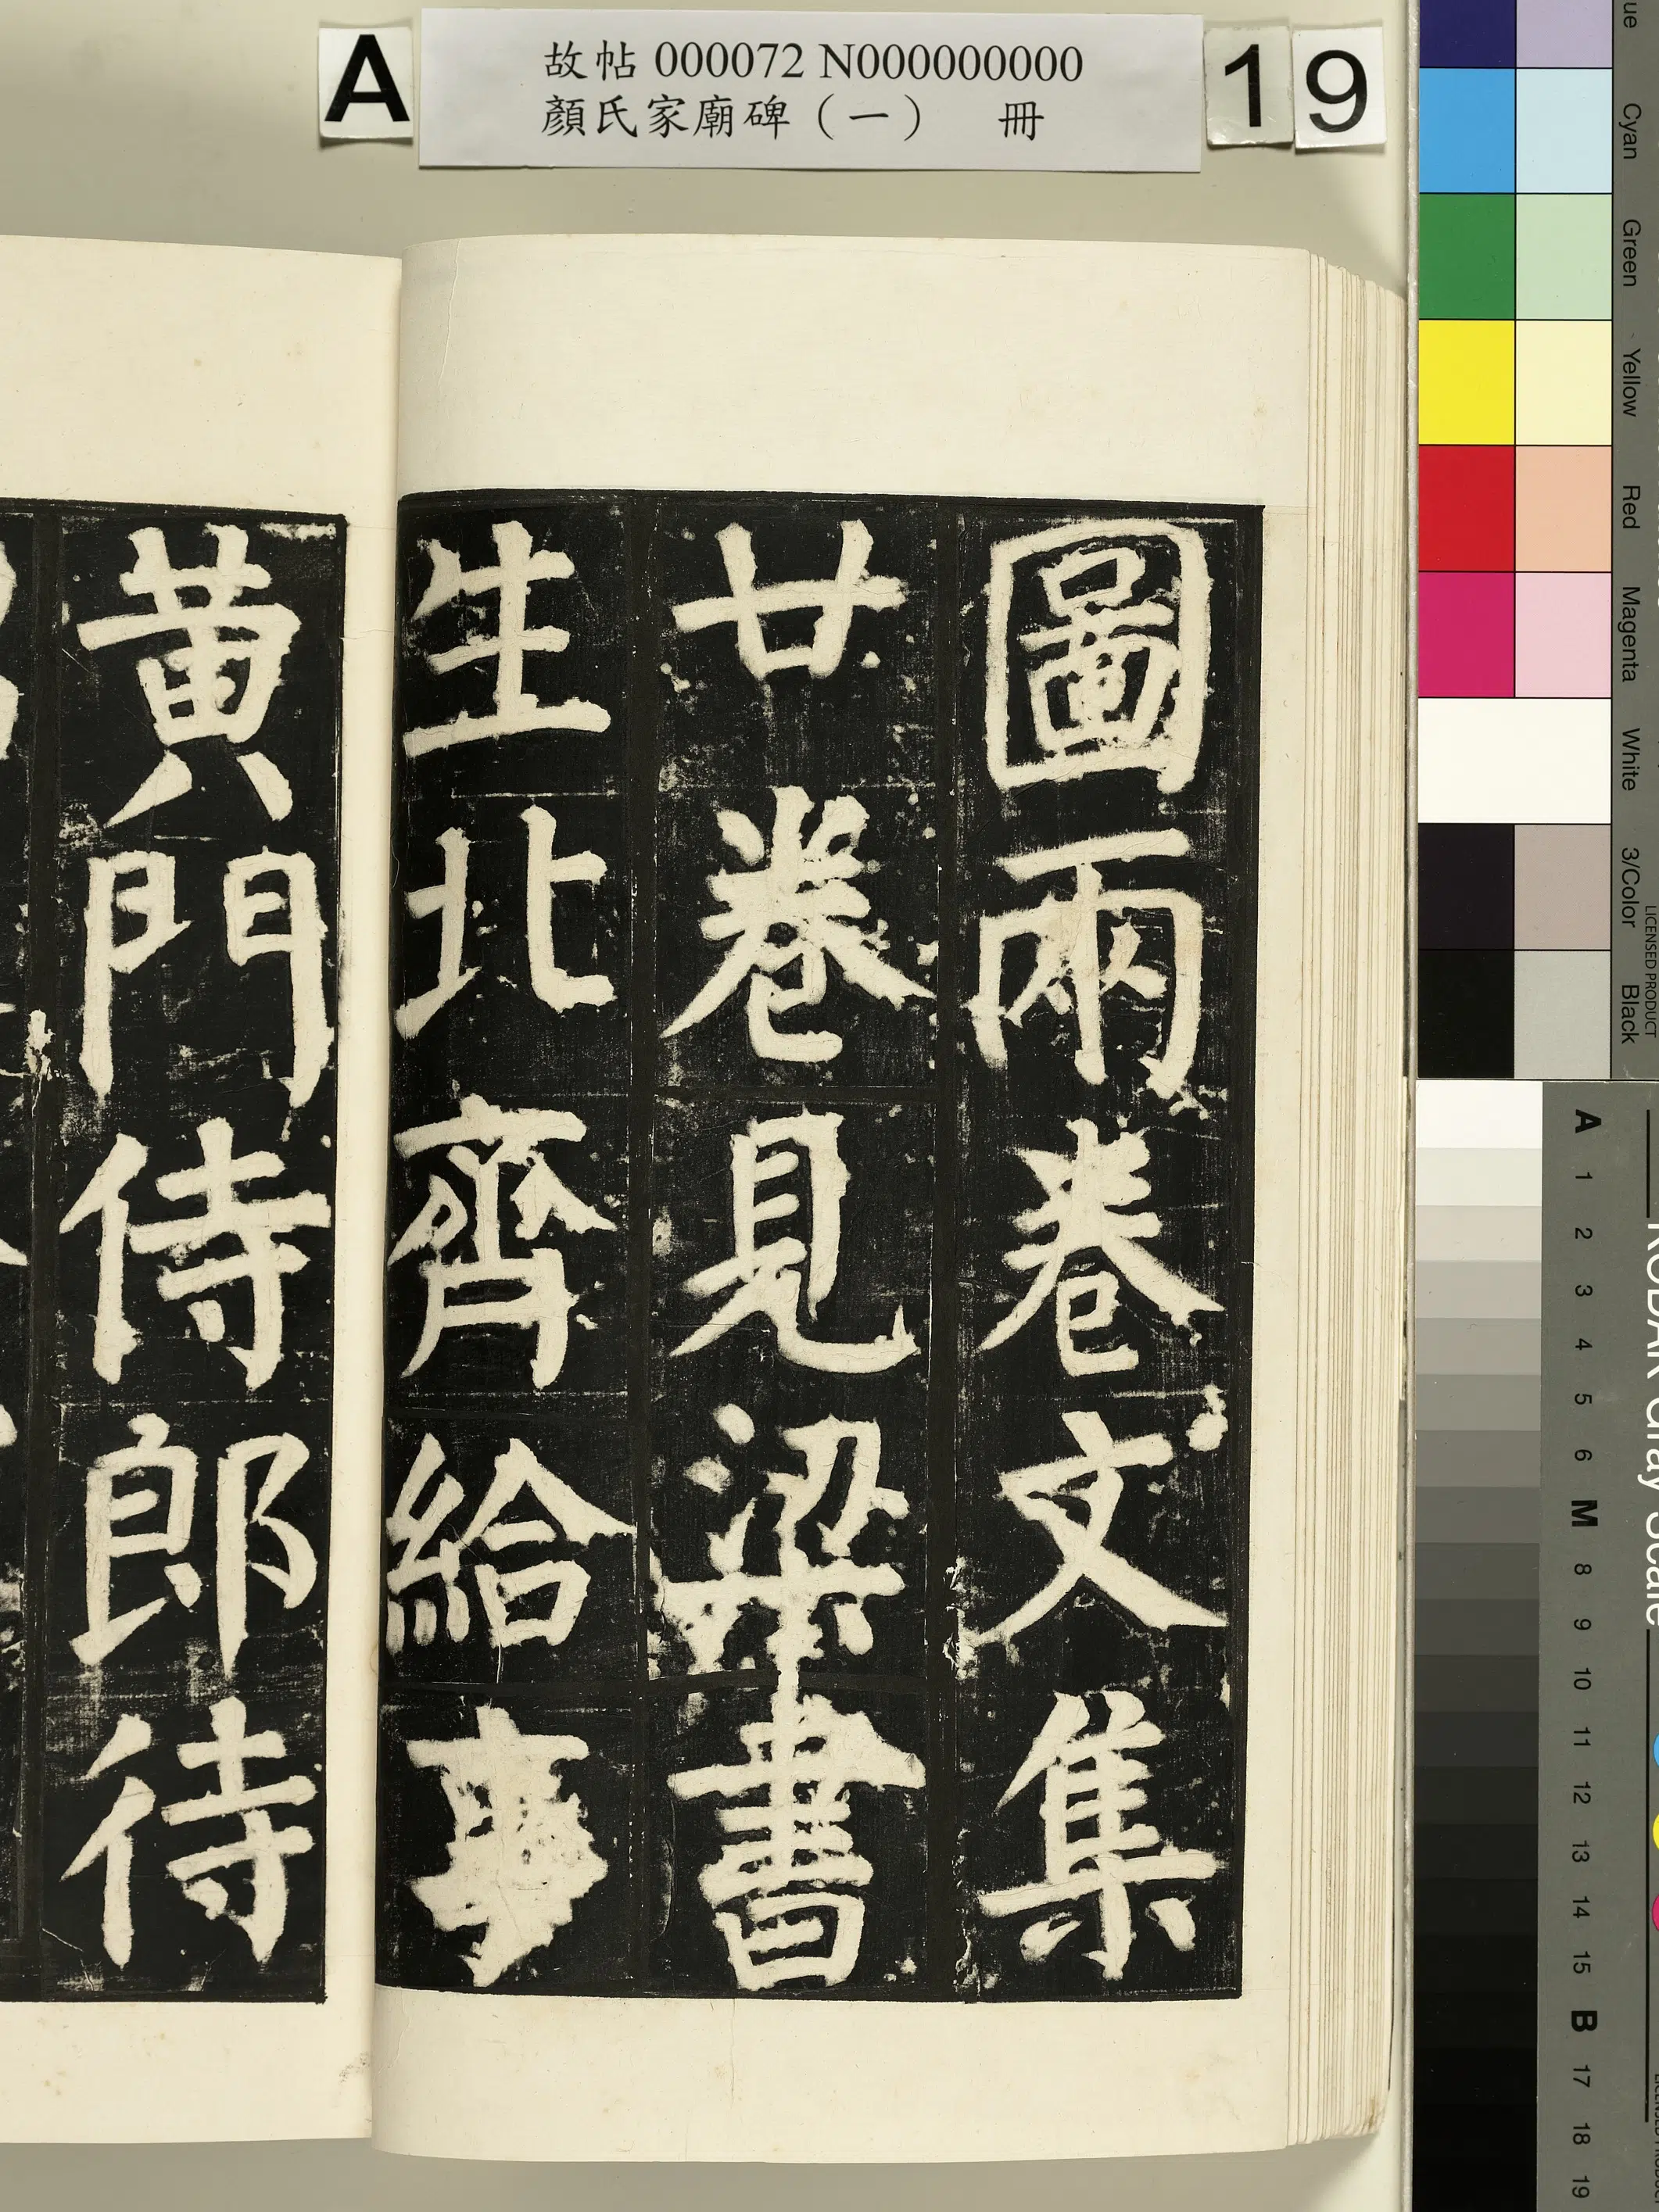 A
故帖 000072 N000000000
顏氏家廟碑（一） 冊
19
圖兩卷文集
廿卷見梁書
生北齊給事
黃門侍郎待
Cyan
Green
Yellow
Red
Magenta
White
3/Color
Black
LICENSED PRODUCT
KODAK Gray Scale
A 1 2 3 4 5 6 M 8 9 10 11 12 13 14 15 B 17 18 19